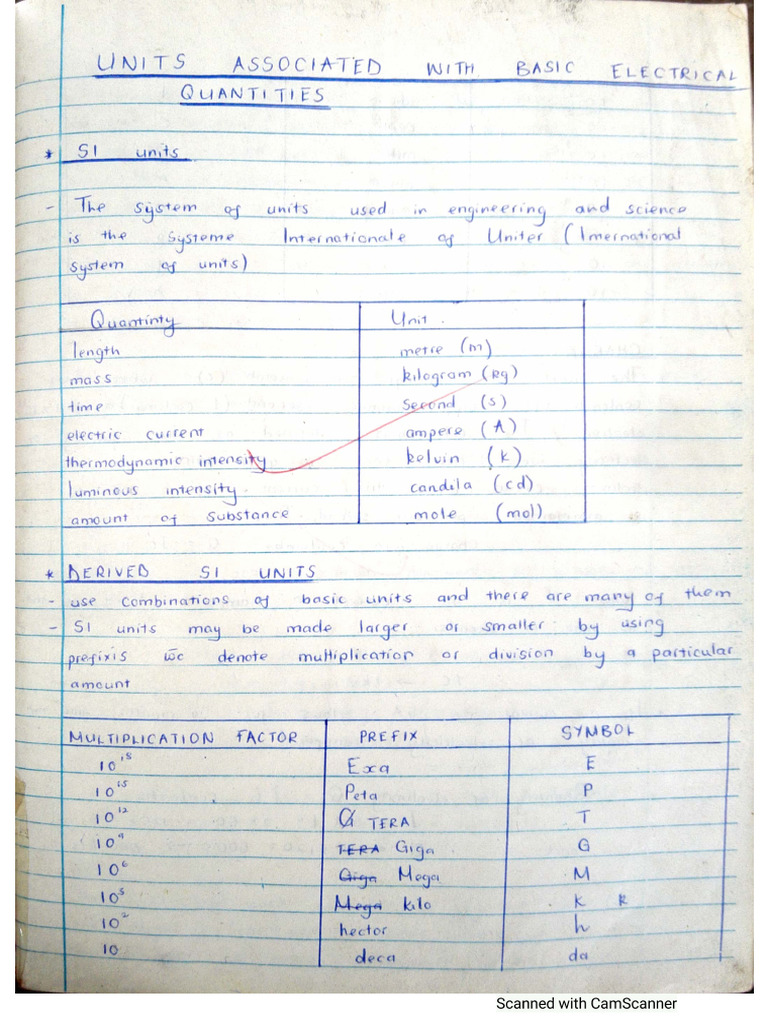 UNITS ASSOCIATED WITH BASIC ELECTRICAL
QUANTITIES
* SI units
- The system of units used in engineering and science
is the Systeme Internationate of Uniter (Imernational
system of units)
Quantinty Unit.
length metre (m)
mass kilogram (kg)
time second (s)
electric current ampere (A)
thermodynamic intensity kelvin (k)
luminous intensity. candela (cd)
amount of substance mole (mol)
* DERIVED SI UNITS
- use combinations of basic units and there are many of them
- SI units may be made larger or smaller by using
prefixis w̄c denote multiplication or division by a particular
amount
MULTIPLICATION FACTOR PREFIX SYMBOL
10¹⁸ Exa E
10¹⁵ Peta P
10¹² G TERA T
10⁹ TERA Giga G
10⁶ Giga Mega M
10³ Mega kilo K k
10² hector h
10 deca da
Scanned with CamScanner